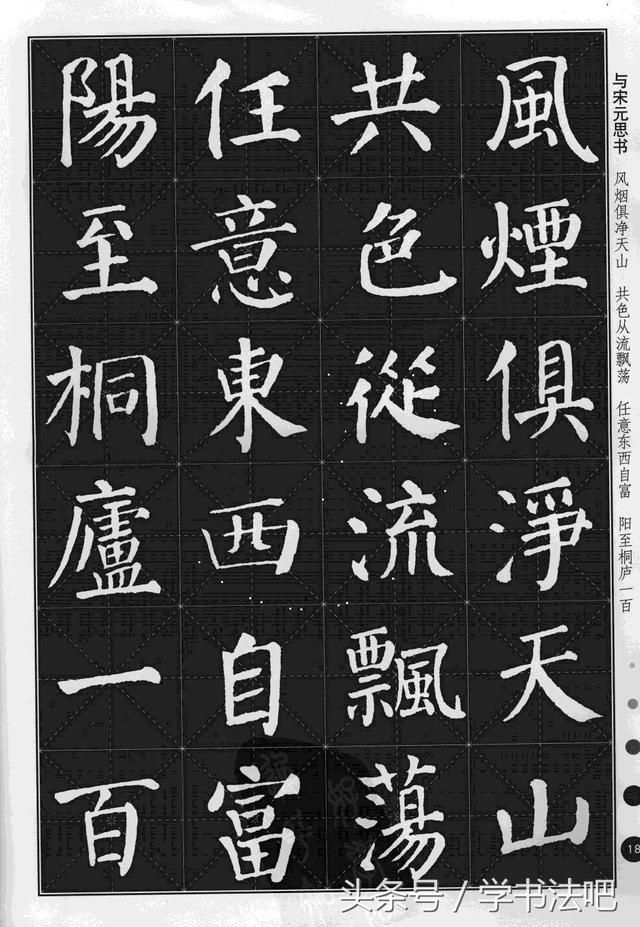 与宋元思书 风烟俱净天山 共色从流飘荡 任意东西自富 阳至桐庐一百
風煙俱淨天山
共色從流飄蕩
任意東西自富
陽至桐廬一百
18
头条号/学书法吧